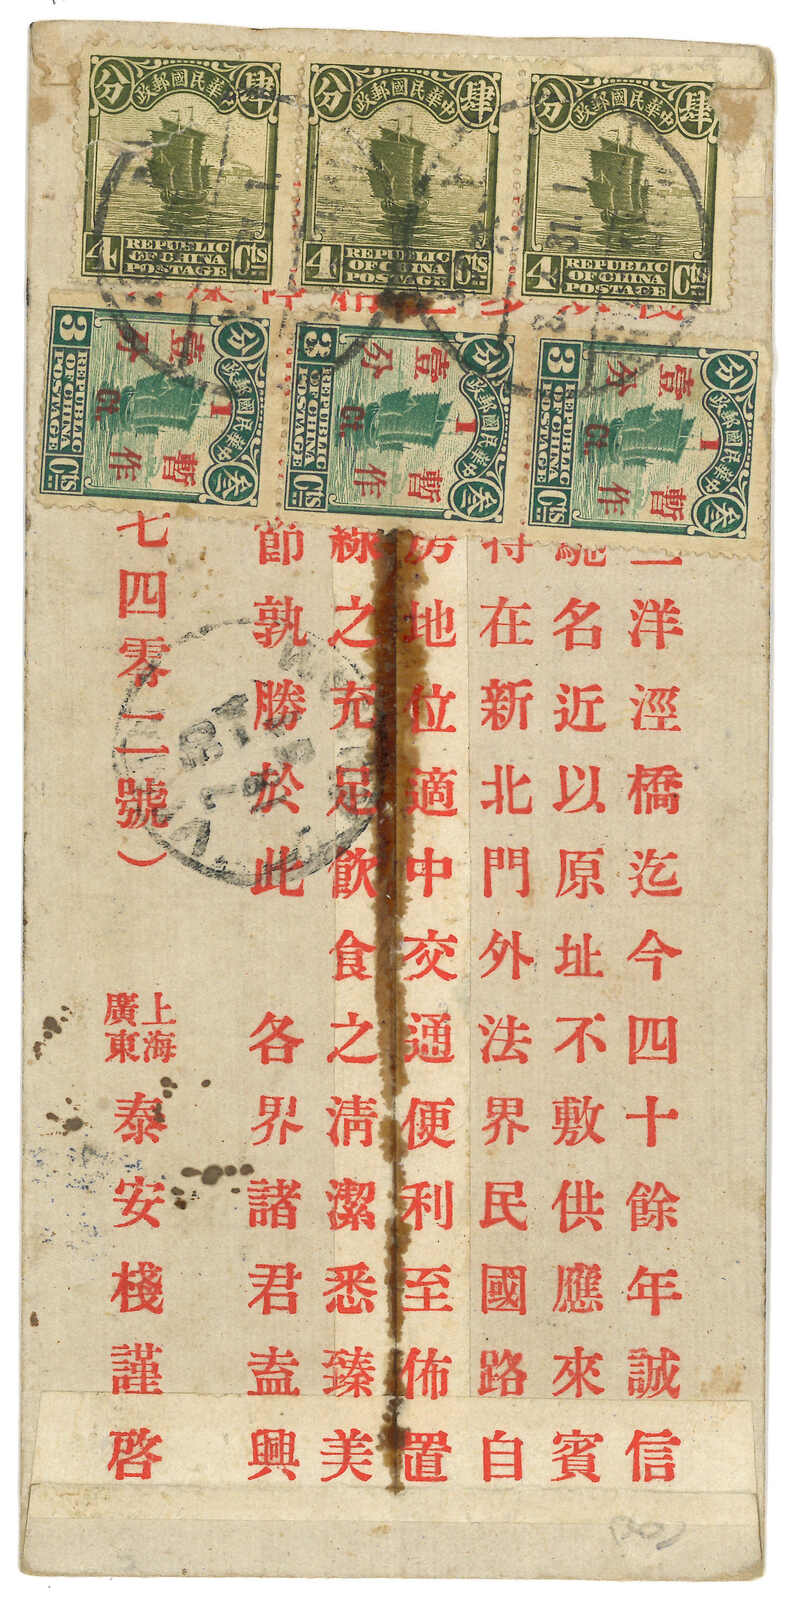 分 中華民國郵政 肆
4 REPUBLIC OF CHINA POSTAGE Cts
分 中華民國郵政 肆
4 REPUBLIC OF CHINA POSTAGE Cts
分 中華民國郵政 肆
4 REPUBLIC OF CHINA POSTAGE Cts
分 中華民國郵政 叁
3 REPUBLIC OF CHINA POSTAGE Cts
暫作 壹分 1 Ct.
分 中華民國郵政 叁
3 REPUBLIC OF CHINA POSTAGE Cts
暫作 壹分 1 Ct.
分 中華民國郵政 叁
3 REPUBLIC OF CHINA POSTAGE Cts
暫作 壹分 1 Ct.
洋涇橋迄今四十餘年誠信
馳名近以原址不敷供應來賓
特在新北門外法界民國路自
房地位適中交通便利至佈置
線之充足飲食之清潔悉臻美
節孰勝於此 各界諸君盍興
七四零二號）
上海
廣東
泰安棧謹啓